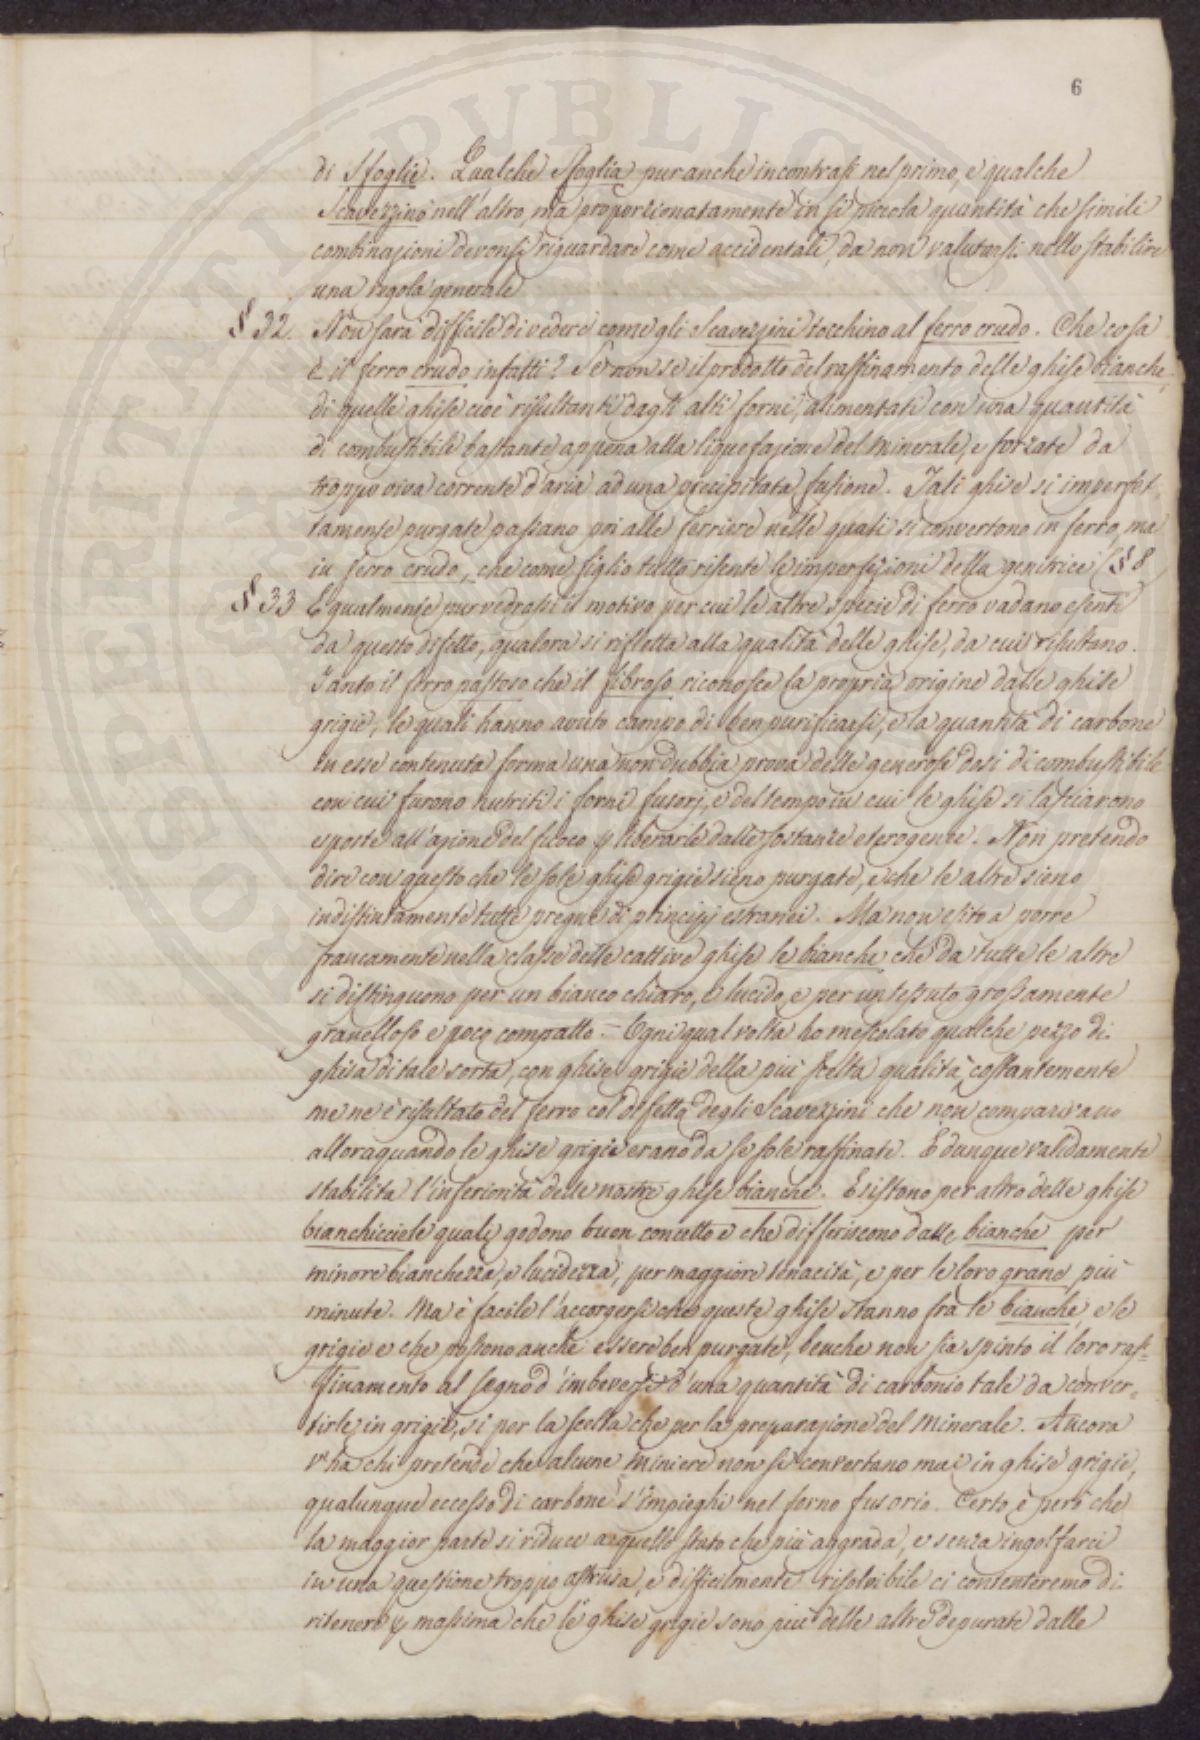 6
di Sfoglie. Qualche Sfoglia pur anche incontrasi nel primo, e qualche
Scavezzino nell'altro, ma proporzionatamente in sì piccola quantità che simili
combinazioni devonsi riguardare come accidentali, da non valutarsi nello stabilire
una regola generale
§ 32. Non sarà difficile di vedere come gli Scavezzini tocchino al ferro crudo. Che cosa
è il ferro crudo infatti? Se non se il prodotto del raffinamento delle ghise bianche,
di quelle ghise cioè risultanti dagli alti forni, alimentati con una quantità
di combustibile bastante appena alla liquefazione del minerale, e forzate da
troppo viva corrente d'aria ad una precipitata fusione. Tali ghise sì imperfet-
tamente purgate passano poi alle ferriere nelle quali si convertono in ferro, ma
in ferro crudo, che come figlio tutto risente le imperfezioni della genitrice (§ 8
§ 33 Egualmente pur vedrassi il motivo per cui le altre specie di ferro vadano esenti
da questo difetto, qualora si rifletta alla qualità delle ghise, da cui risultano.
Tanto il ferro pastoso che il fibroso riconosce la propria origine dalle ghise
grigie, le quali hanno avuto campo di ben purificarsi, e la quantità di carbone
in esse contenuta forma una non dubbia prova delle generose dosi di combustibile
con cui furono nutriti i forni fusorj, e del tempo in cui le ghise si lasciarono
esposte all'azione del fuoco p liberarle dalle sostanze eterogenee. Non pretendo
dire con questo che le sole ghise grigie sieno purgate, e che le altre sieno
indistintamente tutte pregne di principj estranei. Ma non esito a porre
francamente nella classe delle cattive ghise le bianche che da tutte le altre
si distinguono per un bianco chiaro, e lucido, e per un tessuto grossamente
gravelloso e poco compatto = Ogni qual volta ho mescolato qualche pezzo di
ghisa di tale sorta, con ghise grigie della più scelta qualità, costantemente
me ne è risultato del ferro col difetto degli Scavezzini che non comparivano
alloraquando le ghise grigie erano da se sole raffinate. È dunque validamente
stabilita l'inferiorità delle nostre ghise bianche. Esistono per altro delle ghise
bianchicciole quali godono buon concetto e che differiscono dalle bianche per
minore bianchezza, e lucidezza, per maggiore tenacità, e per le loro grane più
minute. Ma è facile l'accorgersi che queste ghise stanno fra le bianche, e le
grigie e che possono anche essere ben purgate, benche non sia spinto il loro raf-
finamento al segno d'imbeversi d'una quantità di carbonio tale da conver-
tirle in grigie, sì per la scelta che per la preparazione del minerale. Ancora
v'ha chi pretende che alcune miniere non si convertano mai in ghise grigie,
qualunque eccesso di carbone s'impieghi nel forno fusorio. Certo è però che
la maggior parte si riduce a quello stato che più aggrada, e senza ingolfarci
in una questione troppo astrusa, e difficilmente risolvibile ci contenteremo di
ritenere p massima che le ghise grigie sono più delle altre depurate dalle